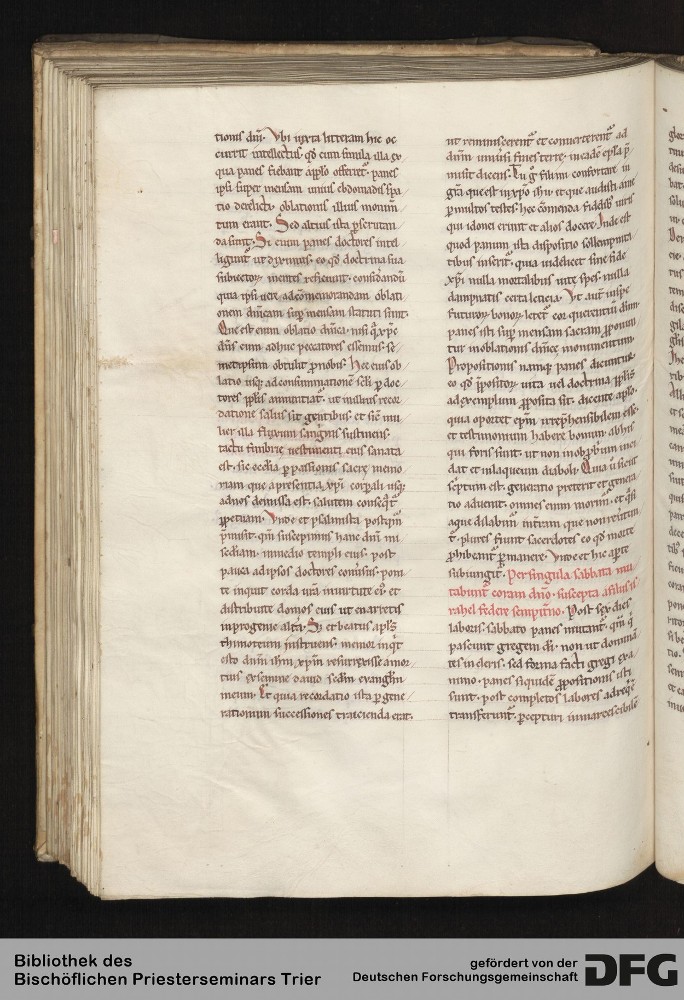 tionis dni. Vbi iuxta litteram hic oc
currit intellectus. qd cum simila illa ex
qua panes fiebant
ipsi super mensam unius ebdomadis spa
tio derelicti. oblationis illius monim
tum erant. Sed altius ista pscrutan
da sunt. Si enim panes doctores intel
ligunt ut diximus. eo qd doctrina sua
subiectorum mentes reficiunt. considandu
quia ipsi vere ad commemorandam oblati
onem dnicam sup mensam statuti sunt.
Que est enim oblatio dnica. nisi q xpc
dns cum adhuc peccatores essemus. se
metipsum obtulit pro nobis. Hec eius ob
latio usq ad consummatione scli p doc
tores pplis annuntiat. ut illius recor
datione salus sit gentibus. et sic mu
lier illa fluxum sanguinis sustinens.
tactu fimbrie vestimenti eius sanata
est. sic ecclia p passionis sacre memo
riam que a presentia xpi corpali usq
ad nos demissa est. salutem conseqt
ppetuam. Vnde et psalmista postqm
pmisit. qm suscepimus hanc dni mi
sediam. in medio templi eius. post
pauca ad ipsos doctores conusus. poni
te inquit corda vra in uirtute ei. et
distribuite domos eius ut enarretis
in progenie alta. Sic et beatus apls
thimoteum instruens. memor inqt
esto dnm ihm xpm resurrexisse a mor
tuis ex semine dauid scdm evanglm
meum. Et quia recordatio ista p gene
rationum successiones traicienda erat.
ut reminiscerent et conuerterent ad
dnm uniusi fines terre. in eade epla p
misit dicens. Tu g fili mi confortare in
gra que est in xpo ihu. et que audisti a me
p multos testes. hec comenda fidelib uiris
qui idonei erunt et alios docere. Inde est
quod panum ista dispositio sollempnita
tibus inserit. quia uidelicet sine fide
xpi nulla mortalibus uite spes. nulla
dampnatis certa leticia. Vt aut in spe
futurorum bonorum letent eorum querentium dnm
panes isti sup mensam sacram pponun
tur in oblationis dnice monimentum.
Propositionis namq panes dicuntur
eo qd ppositorum uita uel doctrina pplis
ad exemplum pposita sit. dicente aplo.
quia oportet epm irrephensibilem esse.
et testimonium habere bonum. ab his
qui foris sunt. ut non in obprobrium inci
dat et in laqueum diaboli. Quia u sicut
sciptum est. generatio preterit et genera
tio aduenit. omnes enim morim. et qsi
aque dilabim in tram que non reuertun
t. plures fiunt sacerdotes eo qd morte
phibeant pmanere. Vnde et hic apte
subiungit. Per singula sabbata mu
tabunt coram dno. suscepta a filiis is
rahel federe sempitno. Post sex dies
laboris. sabbato panes mutant. qm q
pascunt gregem di. non ut dominan
tes in cleris. sed forma facti gregi ex a
nimo. panes siquide ppositionis isti
sunt. post completos labores ad reqe
transferunt. pcepturi inmarcescibile
Bibliothek des
Bischöflichen Priesterseminars Trier
gefördert von der
Deutschen Forschungsgemeinschaft
DFG